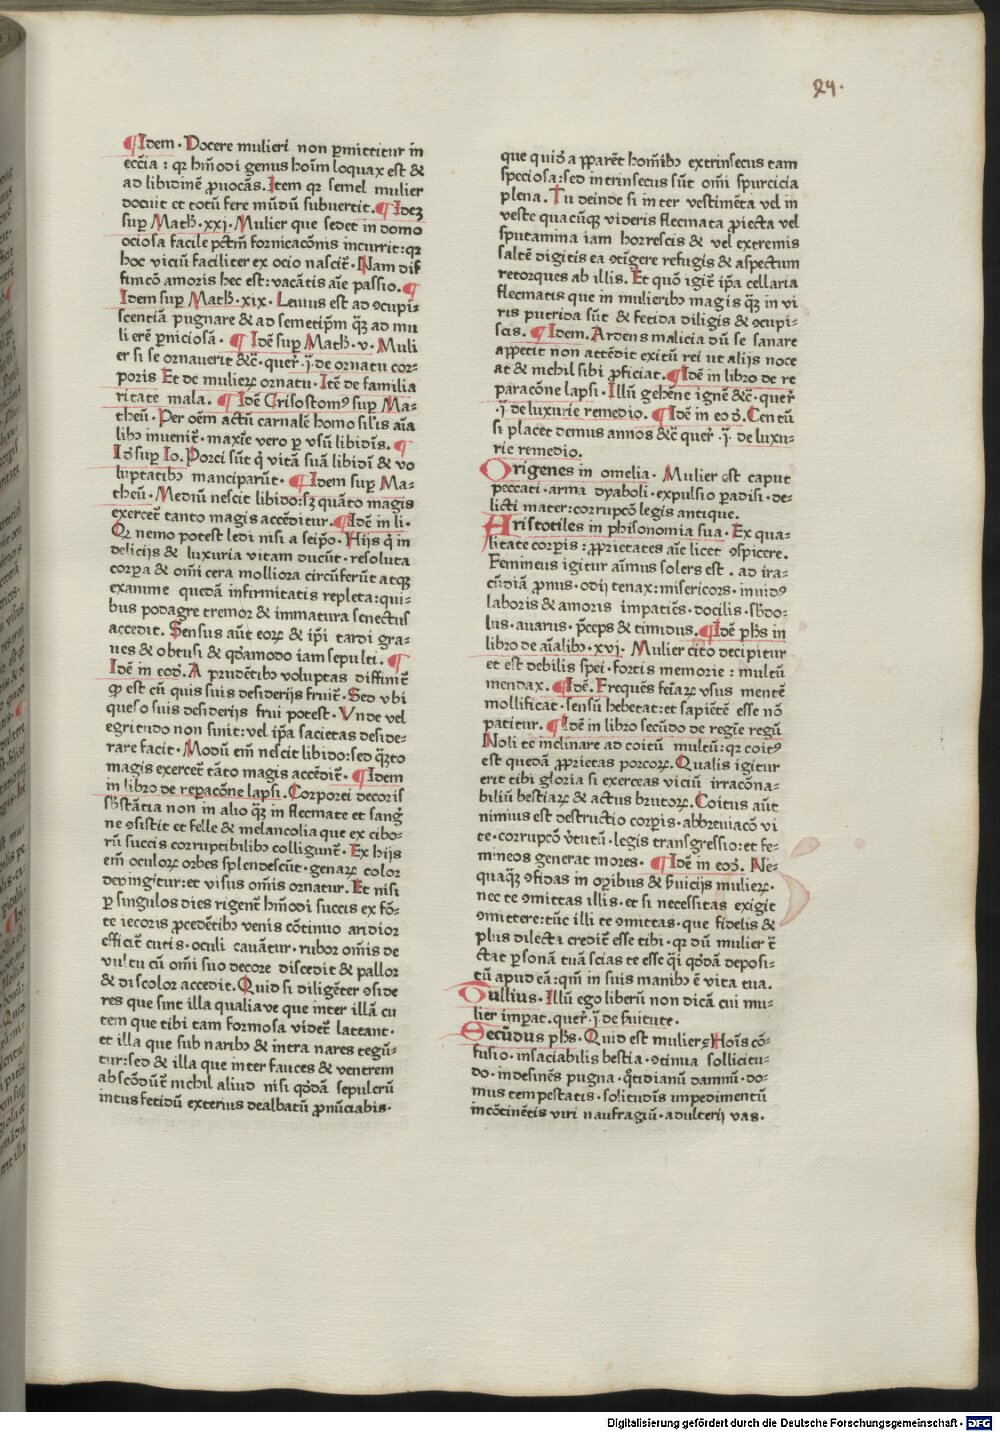 24.
¶Idem. Docere mulieri non ꝑmittitur in̄
ecc̄ia: qꝛ hm̄odi genus hoīm loquax est &
ad libidinē ꝓuocās. Item qꝛ semel mulier
docuit et totū fere mūdū subuertit. ¶Ideʒ
suꝑ Math̄.xxj. Mulier que sedet in domo
ociosa facile pctm̄ fornicacōnis incurrit: qꝛ
hoc viciū faciliter ex ocio nascit̄. Nam dif
finicō amoris hec est: vacātis aīe passio. ¶
Idem suꝑ Math̄.xix. Leuius est ad ꝯcupi⸗
scentiā pugnare & ad semetip̄m qʒ̄ ad mu
li erē ꝑniciosā. ¶ Idē suꝑ Math̄.v. Muli
er si se ornauerit &c̄. quer̄.j̄. de ornatu cor⸗
poris Et de mulieꝝ ornatu. Itē de familia
ritate mala. ¶ Idē Crisostomꝰ suꝑ Ma⸗
theū. Per oēm actū carnalē homo sil̄is aīa
libꝰ inuenit̄. maxīe vero ꝑ vsū libidīs. ¶
Id̄ suꝑ Io. Porci sūt q̇ vitā suā libidī & vo
luptatibꝰ manciparūt. ¶Idem suꝑ Ma⸗
theū. Mediū nescit libido: sʒ quāto magis
exercet̄ tanto magis accēditur. ¶Idē in li.
Qꝛ nemo potest ledi nisi a seip̄o. Hijs q̇ in
delicijs & luxuria vitam ducūt. resoluta
corꝑa & om̄i cera molliora circūferūt atqꝫ
exanime quedā infirmitatis repleta: qui⸗
bus podagre tremor & immatura senectus
accedit. Sensus aūt eoꝝ & ip̄i tardi gra⸗
ues & obtusi & qd̄amodo iam sepulti. ¶
Idē in eod̄. A prudētibꝰ voluptas diffinit̄
qꝫ est cū quis suis desiderijs fruit̄. Sed vbi
quęso suis desiderijs frui potest. Vnde vel
egritudo non sinit: vel ip̄a sacietas deside⸗
rare facit. Modū em̄ nescit libido: sed qʒ̄to
magis exercet̄ tāto magis accēdit̄. ¶Idem
in libro de reꝑacōne lapsi. Corporei decoris
sb̄stātia non in alio qʒ̄ in flecmate et sanḡ
ne ꝯsistit et felle & melancolia que ex cibo⸗
rū succis corruptibilibꝰ colligunt̄. Ex hijs
em̄ oculoꝝ orbes splendescūt. genaꝝ color
depingitur: et visus om̄is ornatur. Et nisi
ꝑ singulos dies rigent̄ hm̄odi succis ex fō⸗
te iecoris ꝓcedētibꝰ venis cōtinuo aridior
efficit̄ cutis. oculi cauātur. rubor om̄is de
vultu cū om̄i suo decore discedit & pallor
& discolor accedit. Quid si diligēter ꝯside
res que sint illa qualiave que inter illā cu
tem que tibi tam formosa videt̄ lateant.
et illa que sub naribꝰ & intra nares tegū⸗
tur: sed & illa que inter fauces & ventrem
abscōdūt̄ nichil aliud nisi qd̄ā sepulcrū
intus fetidū exterius dealbatū ꝓnūciabis.
que quid̄ā ꝑparēt hom̄ibꝰ extrinsecus tam
speciosa: sed intrinsecus sūt om̄i spurcicia
plena. Tu deinde si inter vestimēta vel in
veste quacūqꝫ videris flecmata ꝓiecta vel
sputamina iam horrescis & vel extremis
saltē digitis ea ꝯtigere refugis & aspectum
retorques ab illis. Et quō igit̄ ip̄a cellaria
flecmatis que in mulieribꝰ magis qʒ̄ in vi
ris putrida sūt & fetida diligis & ꝯcupi⸗
scis. ¶Idem. Ardens malicia dū se sanare
appetit non attēdit exitū rei ut alijs noce
at & nichil sibi ꝓficiat. ¶Idē in libro de re
paracōne lapsi. Illū gehēne ignē &c̄. quer̄
.j̄. de luxurie remedio. ¶Idē in eod̄. Centū
si placet demus annos &c̄ quer̄ .j̄. de luxu⸗
rie remedio.
Origenes in omelia. Mulier est caput
peccati. arma dyaboli. expulsio ꝑadisi. de⸗
licti mater: corrupcō legis antique.
Aristotiles in phisonomia sua. Ex qua⸗
litate corꝑis: ꝓprietates aīe licet ꝯspicere.
Femineus igitur aīmus solers est. ad ira⸗
cūdiā ꝓnus. odij tenax: misericors. inuidꝰ
laboris & amoris impatiēs. docilis. sb̄do⸗
lus. auarus. p̄ceps & timidus. ¶Idē ph̄s in
libro de aīalibꝰ.xvj. Mulier cito decipitur
et est debilis spei. fortis memorie: multū
mendax. ¶Idē. Frequēs feīaꝝ vsus mentē
mollificat. sensū hebetat: et sapiētē esse nō
patitur. ¶Idē in libro secūdo de regīe regū
Noli te inclinare ad coitū multū: qꝛ coitꝰ
est quedā ꝓprietas porcoꝝ. Qualis igitur
erit tibi gloria si exerceas viciū irracōna⸗
biliū bestiaꝝ & actus brutoꝝ. Coitus aūt
nimius est destructio corꝑis. abbreuiacō vi
te. corrupcō v̄tutū. legis transgressio: et fe⸗
mineos generat mores. ¶Idē in eod̄. Ne⸗
quaqʒ̄ ꝯfidas in oꝑibus & ẜuicijs mulieꝝ.
nec te ꝯmittas illis. et si necessitas exigit
ꝯmittere: tūc illi te ꝯmittas. que fidelis &
plus dilecta credit̄ esse tibi. qꝛ dū mulier t̄
ctat ꝑsonā tuā scias te esse q̄i qd̄ā deposi⸗
tū apud eā: qm̄ in suis manibꝰ ē vita tua.
Tullius. Illū ego liberū non dicā cui mu⸗
lier imꝑat. quer̄.j̄. de ẜuitute.
Secūdus ph̄s. Quid est mulier? Hoīs cō⸗
fusio. insaciabilis bestia. ꝯtinua sollicitu⸗
do. indesinēs pugna. q̄tidianū damnū. do⸗
mus tempestatis. solitudīs impedimentū
incōtinētis viri naufragiū. adulterij vas.
Digitalisierung gefördert durch die Deutsche Forschungsgemeinschaft - DFG